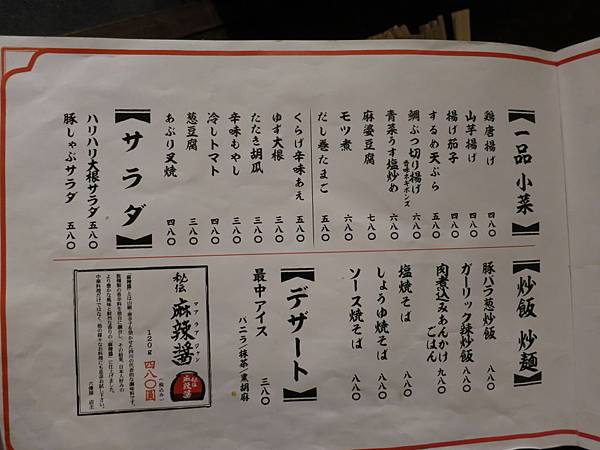 【一品 小菜】
鶏唐揚げ 四八〇
山芋揚げ 四八〇
揚げ茄子 四八〇
するめ天ぷら 五八〇
鯛ぶつ切り揚げ 六八〇
青菜うす塩炒め 六八〇
麻婆豆腐 七八〇
モツ煮 六八〇
だし巻たまご 五八〇
くらげ辛味あえ 五八〇
ゆず大根 三八〇
たたき胡瓜 三八〇
辛味もやし 三八〇
冷しトマト 四八〇
葱豆腐 三八〇
あぶり叉焼 四八〇
【サラダ】
ハリハリ大根サラダ 五八〇
豚しゃぶサラダ 五八〇
【炒飯 炒麺】
豚バラ葱炒飯 八八〇
ガーリック辣炒飯 八八〇
肉煮込みあんかけごはん 九八〇
塩焼そば 八八〇
しょうゆ焼そば 八八〇
ソース焼そば 八八〇
【デザート】
最中アイス 三八〇
バニラ/抹茶/黒胡麻
秘伝 麻辣醤
マアラアジャン
120g 四八〇圓(税込み)